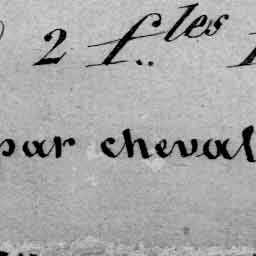 2 f.les
par cheval